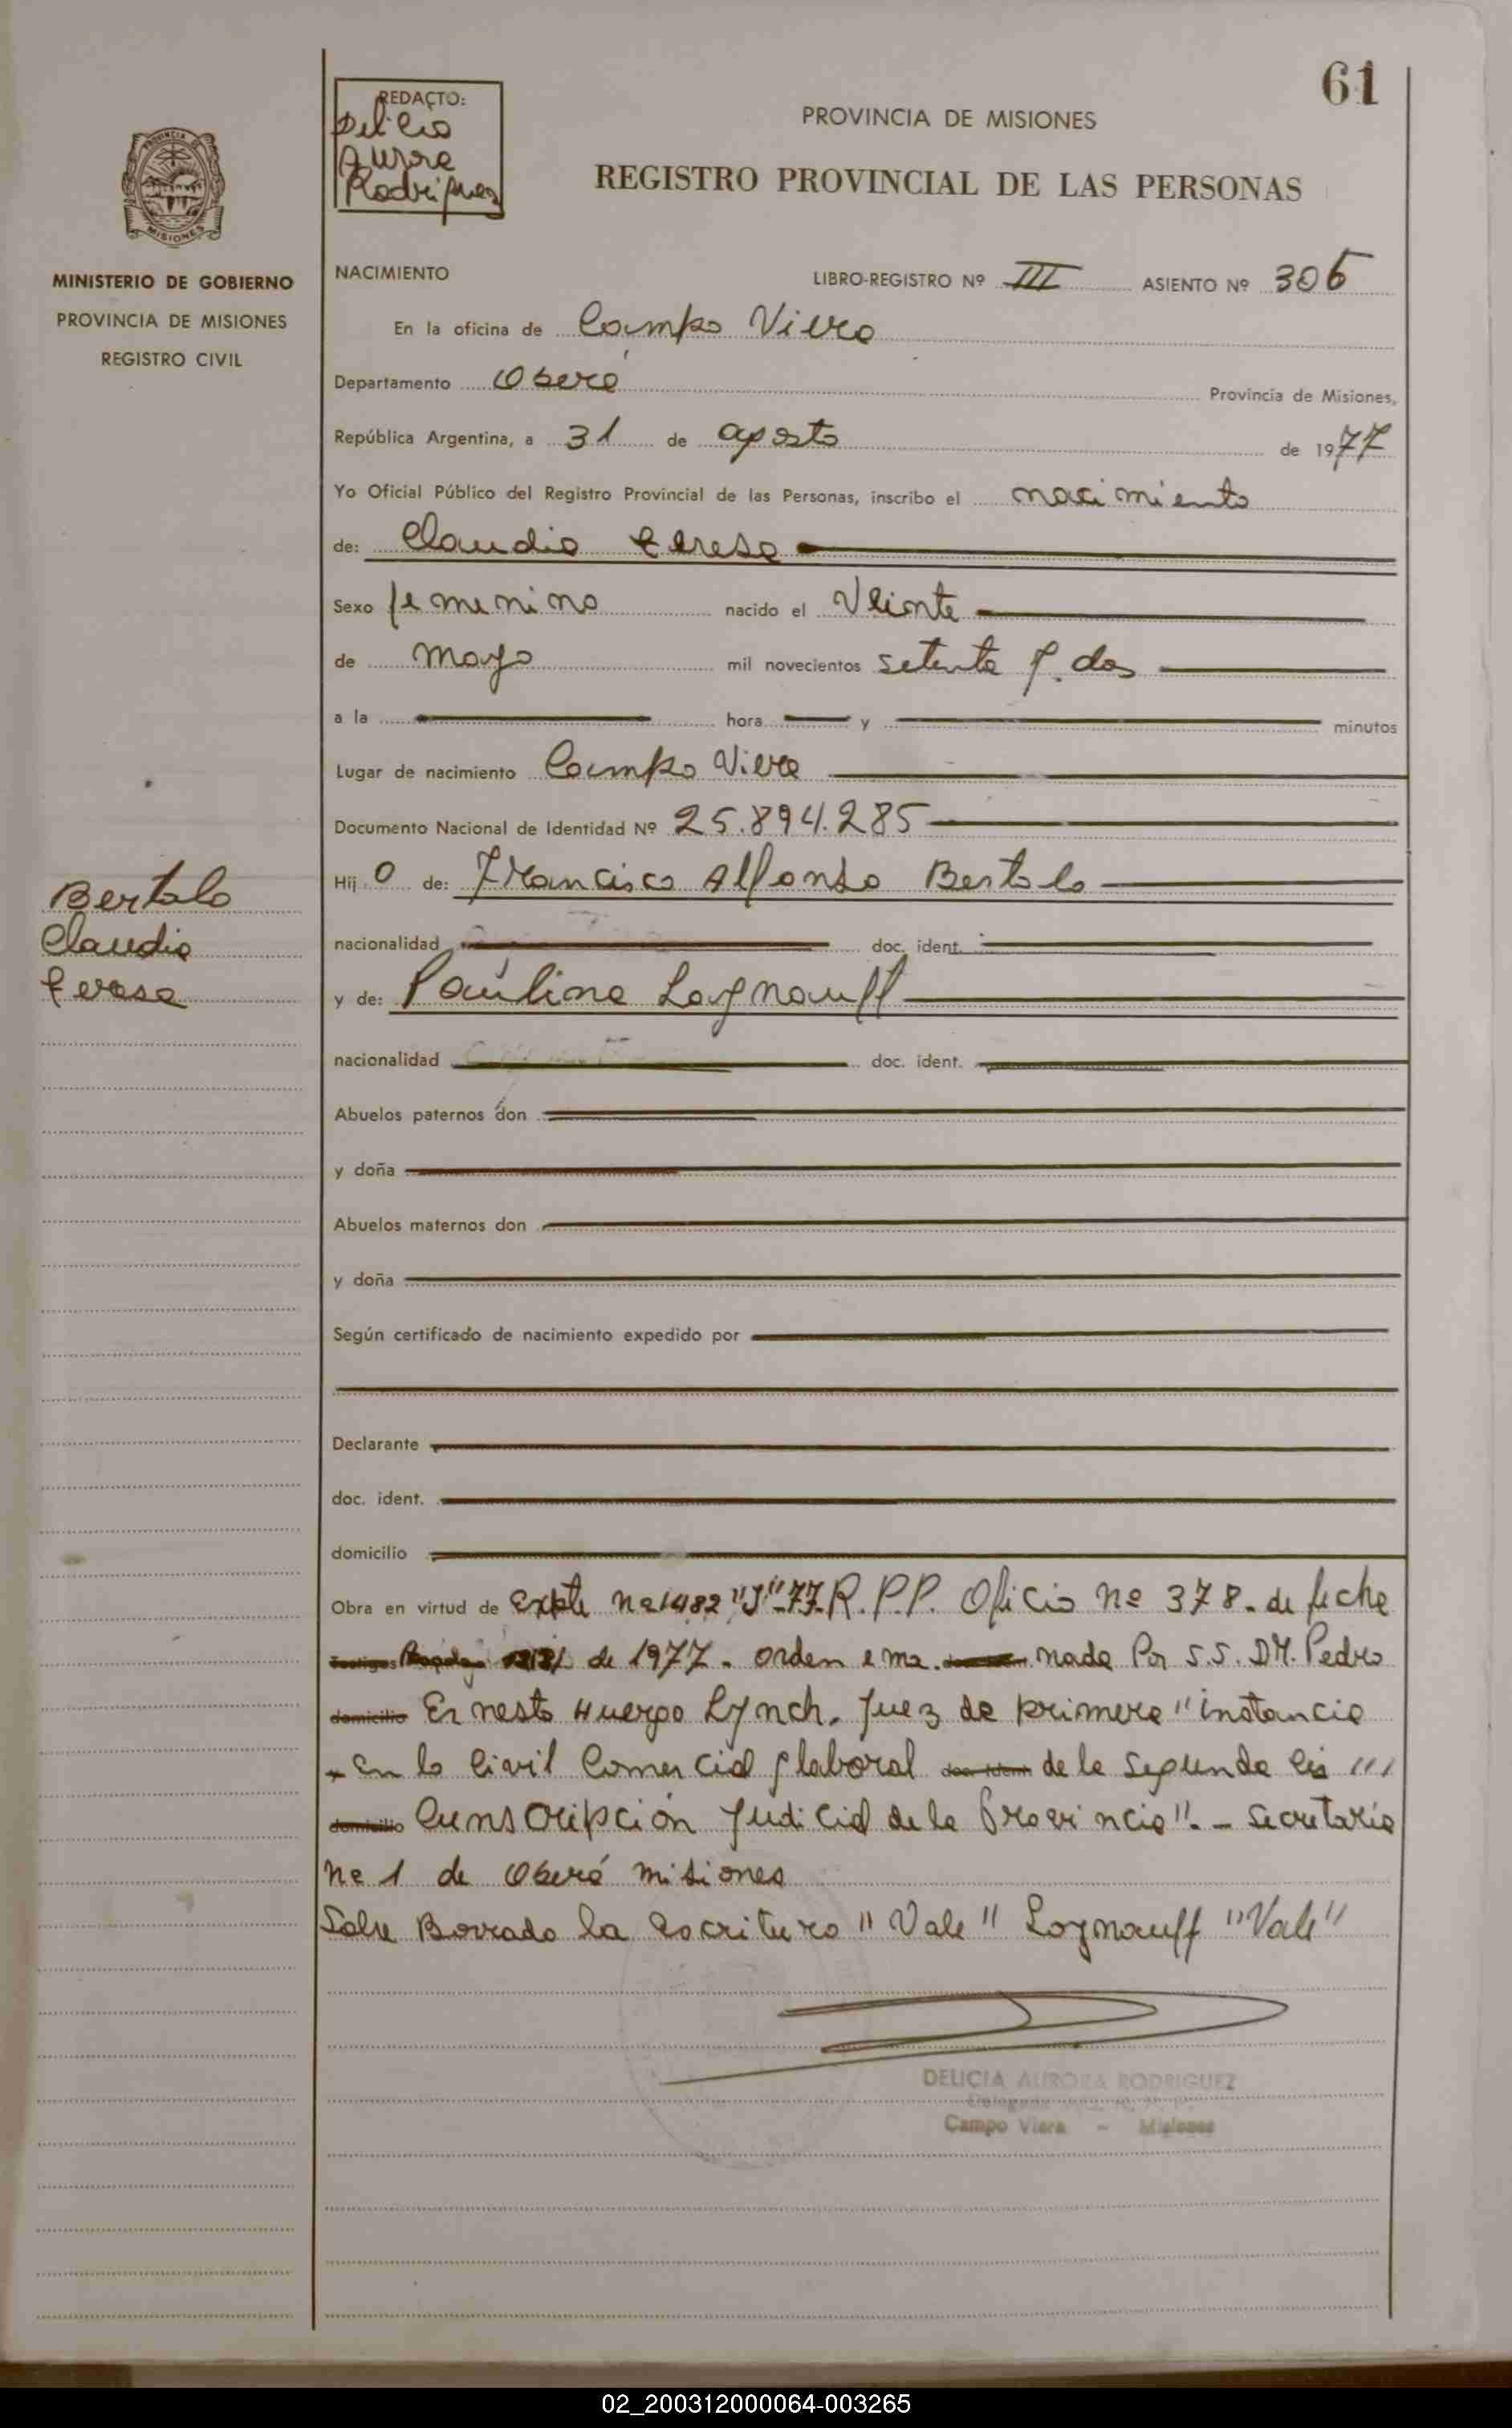 61
REDACTO:
Delicia
Aurora
Rodriguez
PROVINCIA DE MISIONES
REGISTRO PROVINCIAL DE LAS PERSONAS
PROVINCIA
MISIONES
MINISTERIO DE GOBIERNO
PROVINCIA DE MISIONES
REGISTRO CIVIL
NACIMIENTO LIBRO-REGISTRO Nº III ASIENTO Nº 306
En la oficina de Campo Viera
Departamento Oberá Provincia de Misiones,
República Argentina, a 31 de agosto de 1977
Yo Oficial Público del Registro Provincial de las Personas, inscribo el nacimiento
de: Claudia teresa
Sexo femenino nacido el Veinte
de mayo mil novecientos setenta y dos
a la hora y minutos
Lugar de nacimiento Campo Viera
Documento Nacional de Identidad Nº 25.894.285
Hij o de: Francisco Alfonso Bertolo
Bertolo
Claudia
teresa
nacionalidad doc. ident.
y de: Paulina Loynauff
nacionalidad doc. ident.
Abuelos paternos don
y doña
Abuelos maternos don
y doña
Según certificado de nacimiento expedido por
Declarante
doc. ident.
domicilio
Obra en virtud de Expte nº 1482 "J"-77. R.P.P. Oficio nº 378. de fecha
Testigos de 1977. orden ema. nada Por S.S. DR. Pedro
domicilio Ernesto Huergo Lynch. Juez de primera "instancia
en lo Civil Comercial y laboral doc. ident. de la Segunda Cir ///
domicilio Cunscripción Judicial de la Provincia". - Secretaría
nº 1 de Oberá misiones
Sobre Borrado la escritura "Vale" Loynauff "Vale"
DELICIA AURORA RODRIGUEZ
Campo Viera - Misiones
02_200312000064-003265